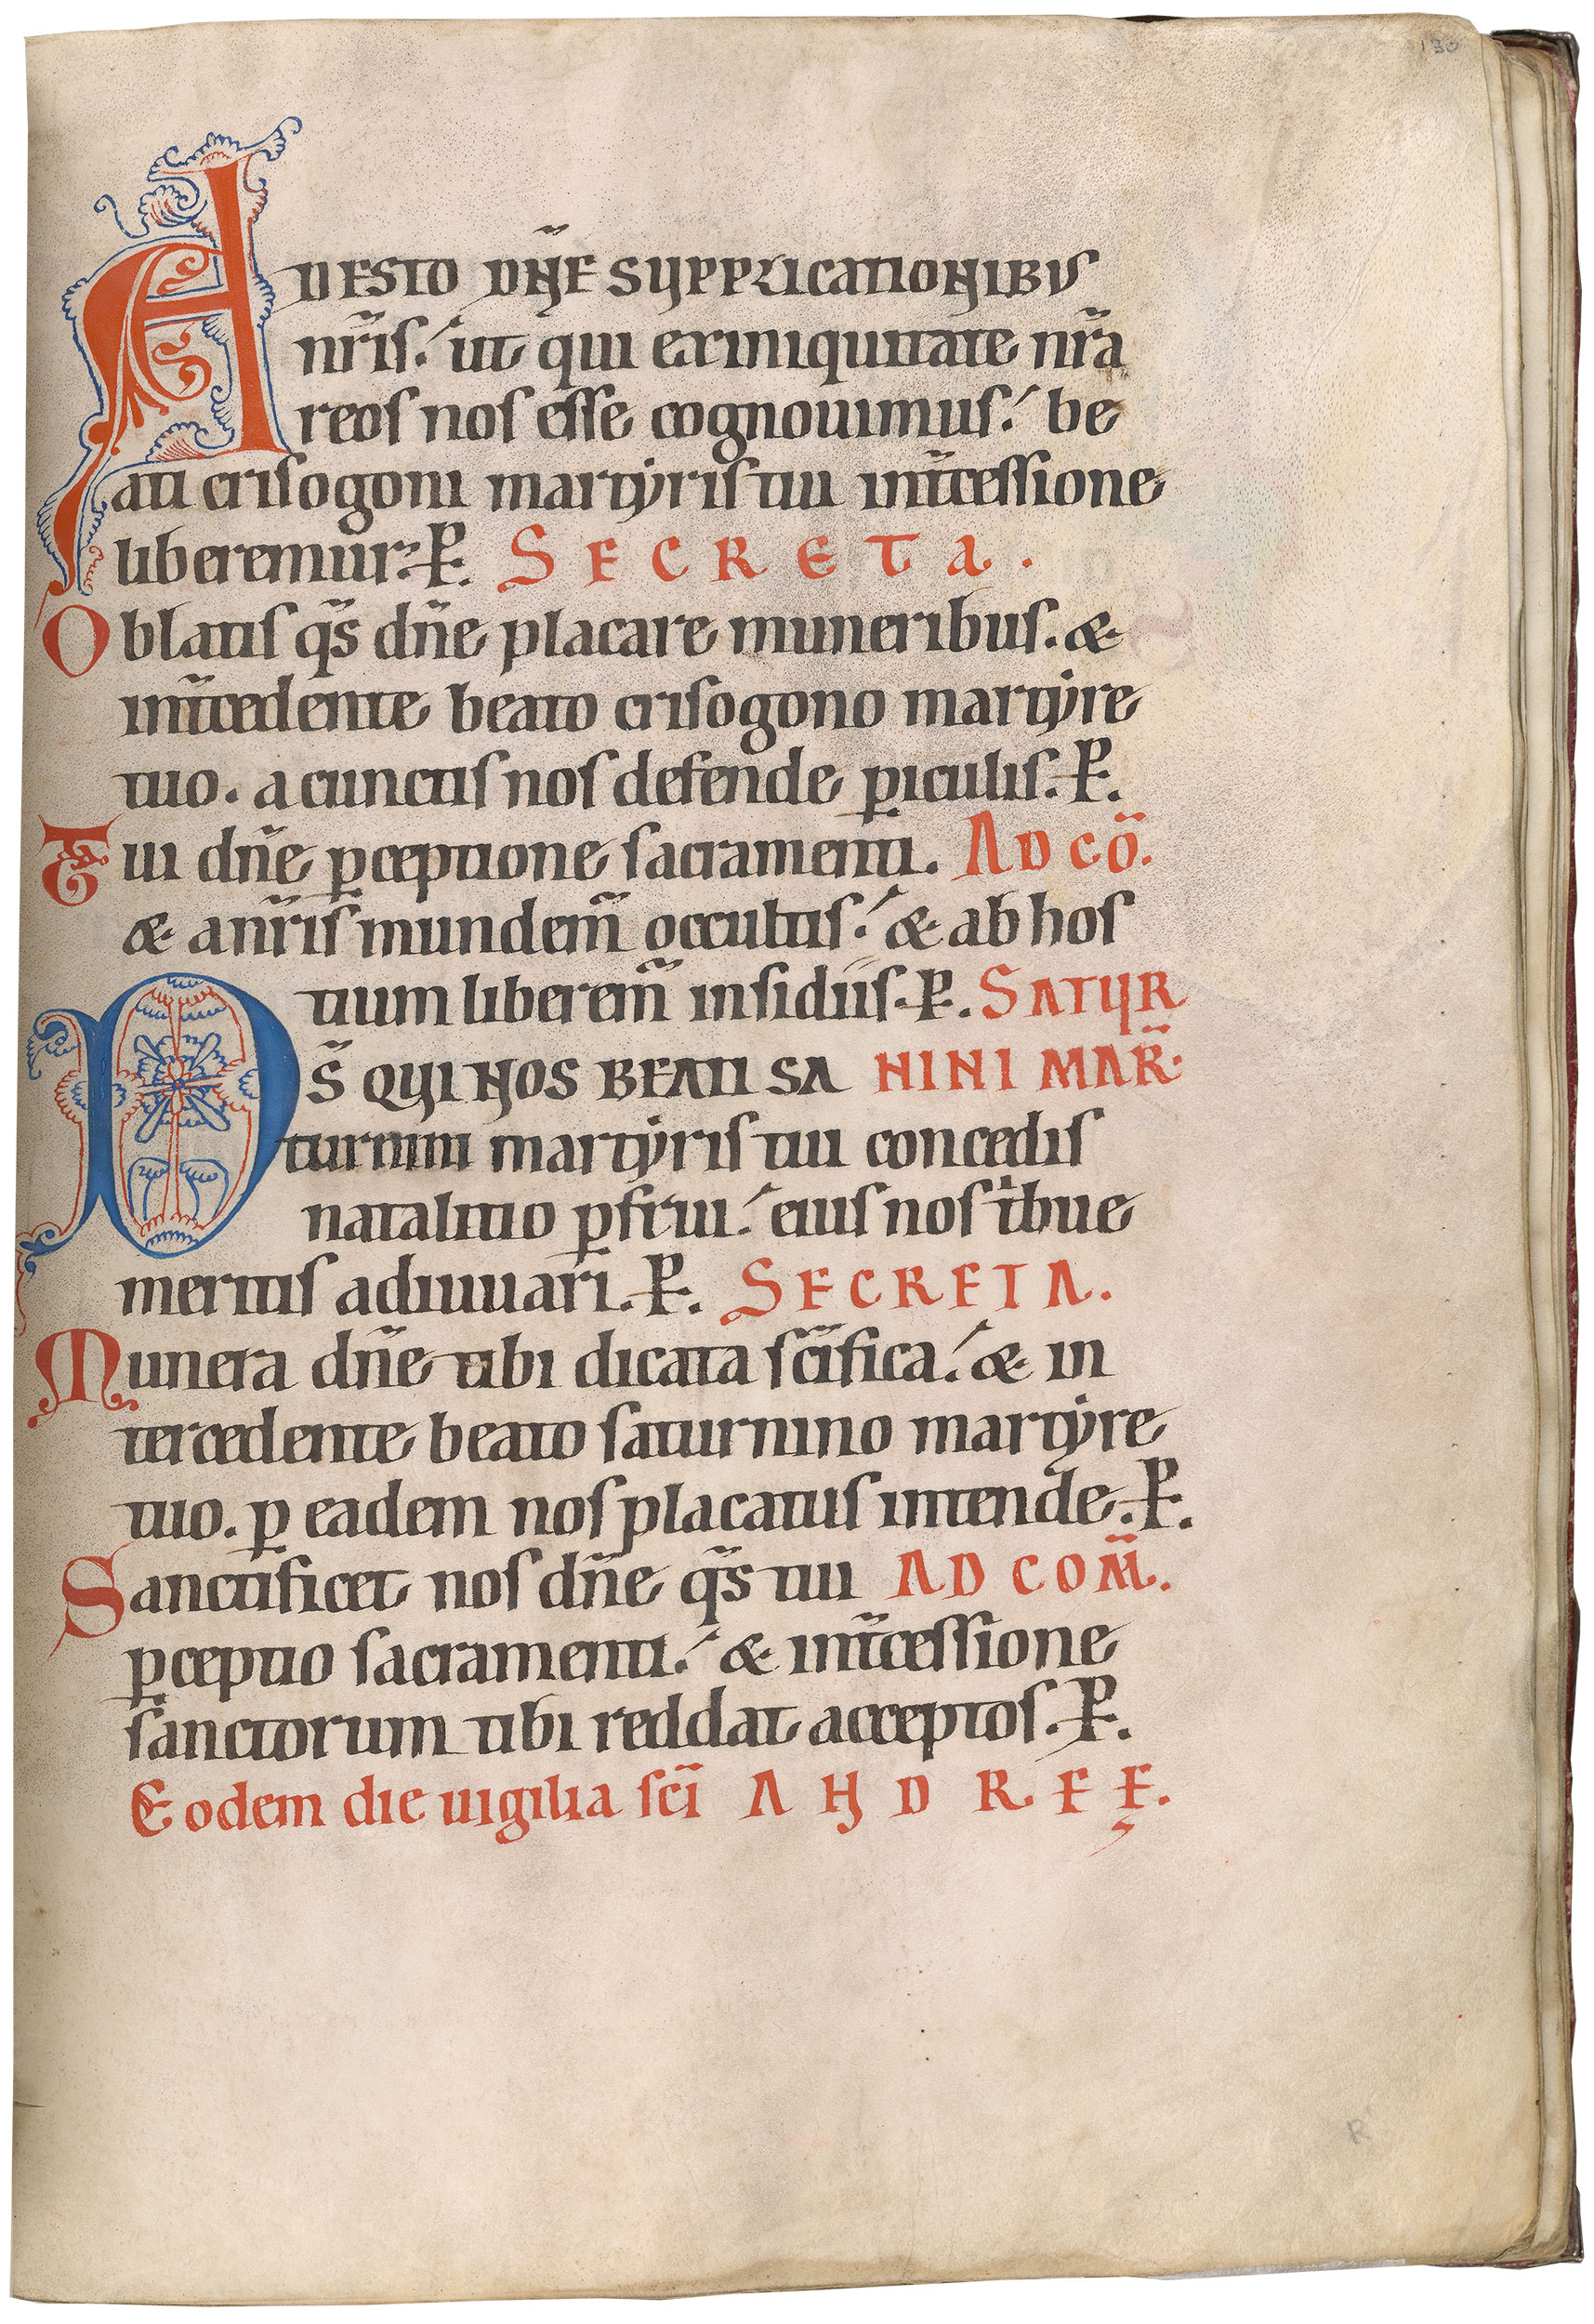 130
ADESTO DN̄E SUPPLICATIONIBUS
nr̄is. ut qui exiniquitate nr̄a
reos nos esse cognouimus. be
ati crisogoni martyris tui int̄cessione
liberemur. P. SECRETA.
Oblatis qs̄ dn̄e placare muneribus. &
int̄cedente beato crisogono martyre
tuo. a cunctis nos defende ꝑiculis. P.
Tui dn̄e ꝑceptione sacramenti. AD CŌ.
& anr̄is mundem̄ occultis. & ab hos
tium liberem̄ insidiis. P. SATUR
DS̄ QUI NOS BEATI SA NINI MAR̄.
turnini martyris tui concedis
natalitio ꝑfrui. eius nos tͥbue
meritis adiuuari. P. SECRETA.
Munera dn̄e tibi dicata sc̄ifica. & in
tercedente beato saturnino martyre
tuo. ꝑ eadem nos placatus intende. P.
Sanctificet nos dn̄e qs̄ tui AD COM̄.
ꝑceptio sacramenti. & int̄cessione
sanctorum tibi reddat acceptos. P.
Eodem die uigilia sc̄i ANDREĘ.
R